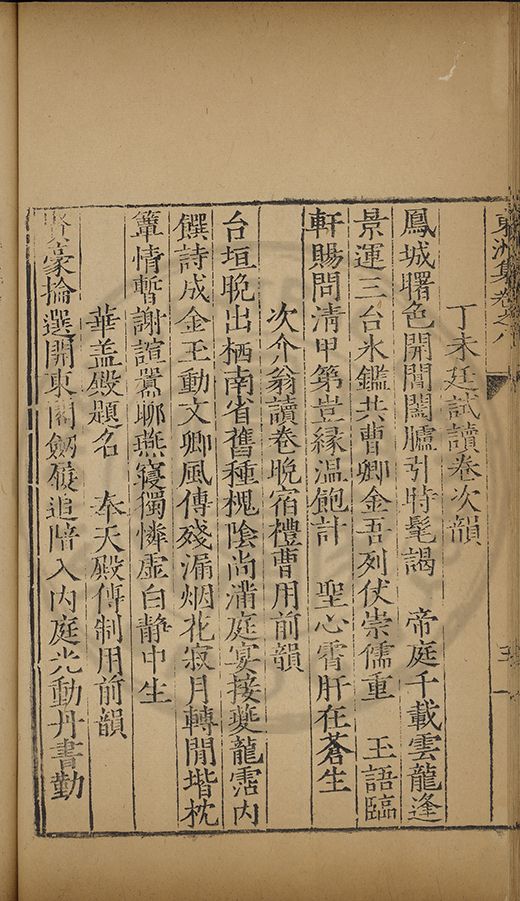 東洲集卷之八
丁未廷試讀卷次韻
鳳城曙色開閶闔臚引時髦謁 帝庭千載雲龍逢
景運三台氷鑑共曹卿金吾列仗崇儒重 玉語臨
軒賜問清甲第豈緣温飽計 聖心宵旰在蒼生
次介翁讀卷晚宿禮曹用前韻
台垣晚出栖南省舊種槐陰尚滿庭宴接夔龍霑内
饌詩成金玉動文卿風傳殘漏烟花寂月轉閒堦枕
簟情暫謝諠囂聊燕寢獨憐虛白静中生
華盖殿題名 奉天殿傳制用前韻
豪掄選開東閣劒履追陪入内庭光動丹書勤